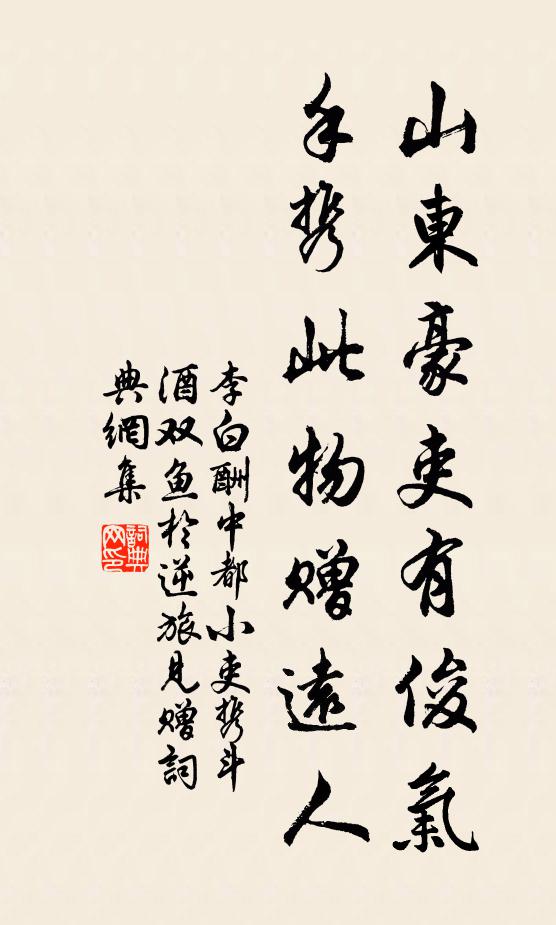 山東豪吏有俊氣
手携此物贈遠人
李白酬中都小吏携斗
酒双鱼於逆旅見贈詞
典網集
詞典网印